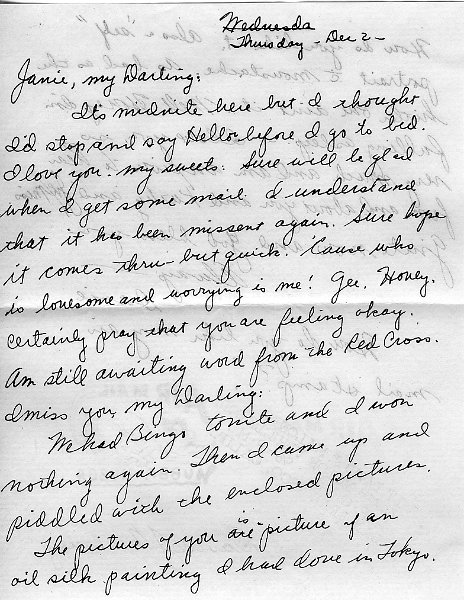 Wednesda
Thursday - Dec 2 -
Janie, my Darling:
Its midnite here but I thought
I'd stop and say Hello before I go to bed.
I love you my sweets. Sure will be glad
when I get some mail. I understand
that it has been missent again. Sure hope
it comes thru - but quick. 'Cause who
is lonesome and worrying is me! Gee, Honey.
certainly pray that you are feeling okay.
Am still awaiting word from the Red Cross.
I miss you, my Darling:
We had Bingo tonite and I won
nothing again. Then I came up and
piddled with the enclosed pictures.
The pictures of you are is picture of an
oil silk painting I had done in Tokyo.